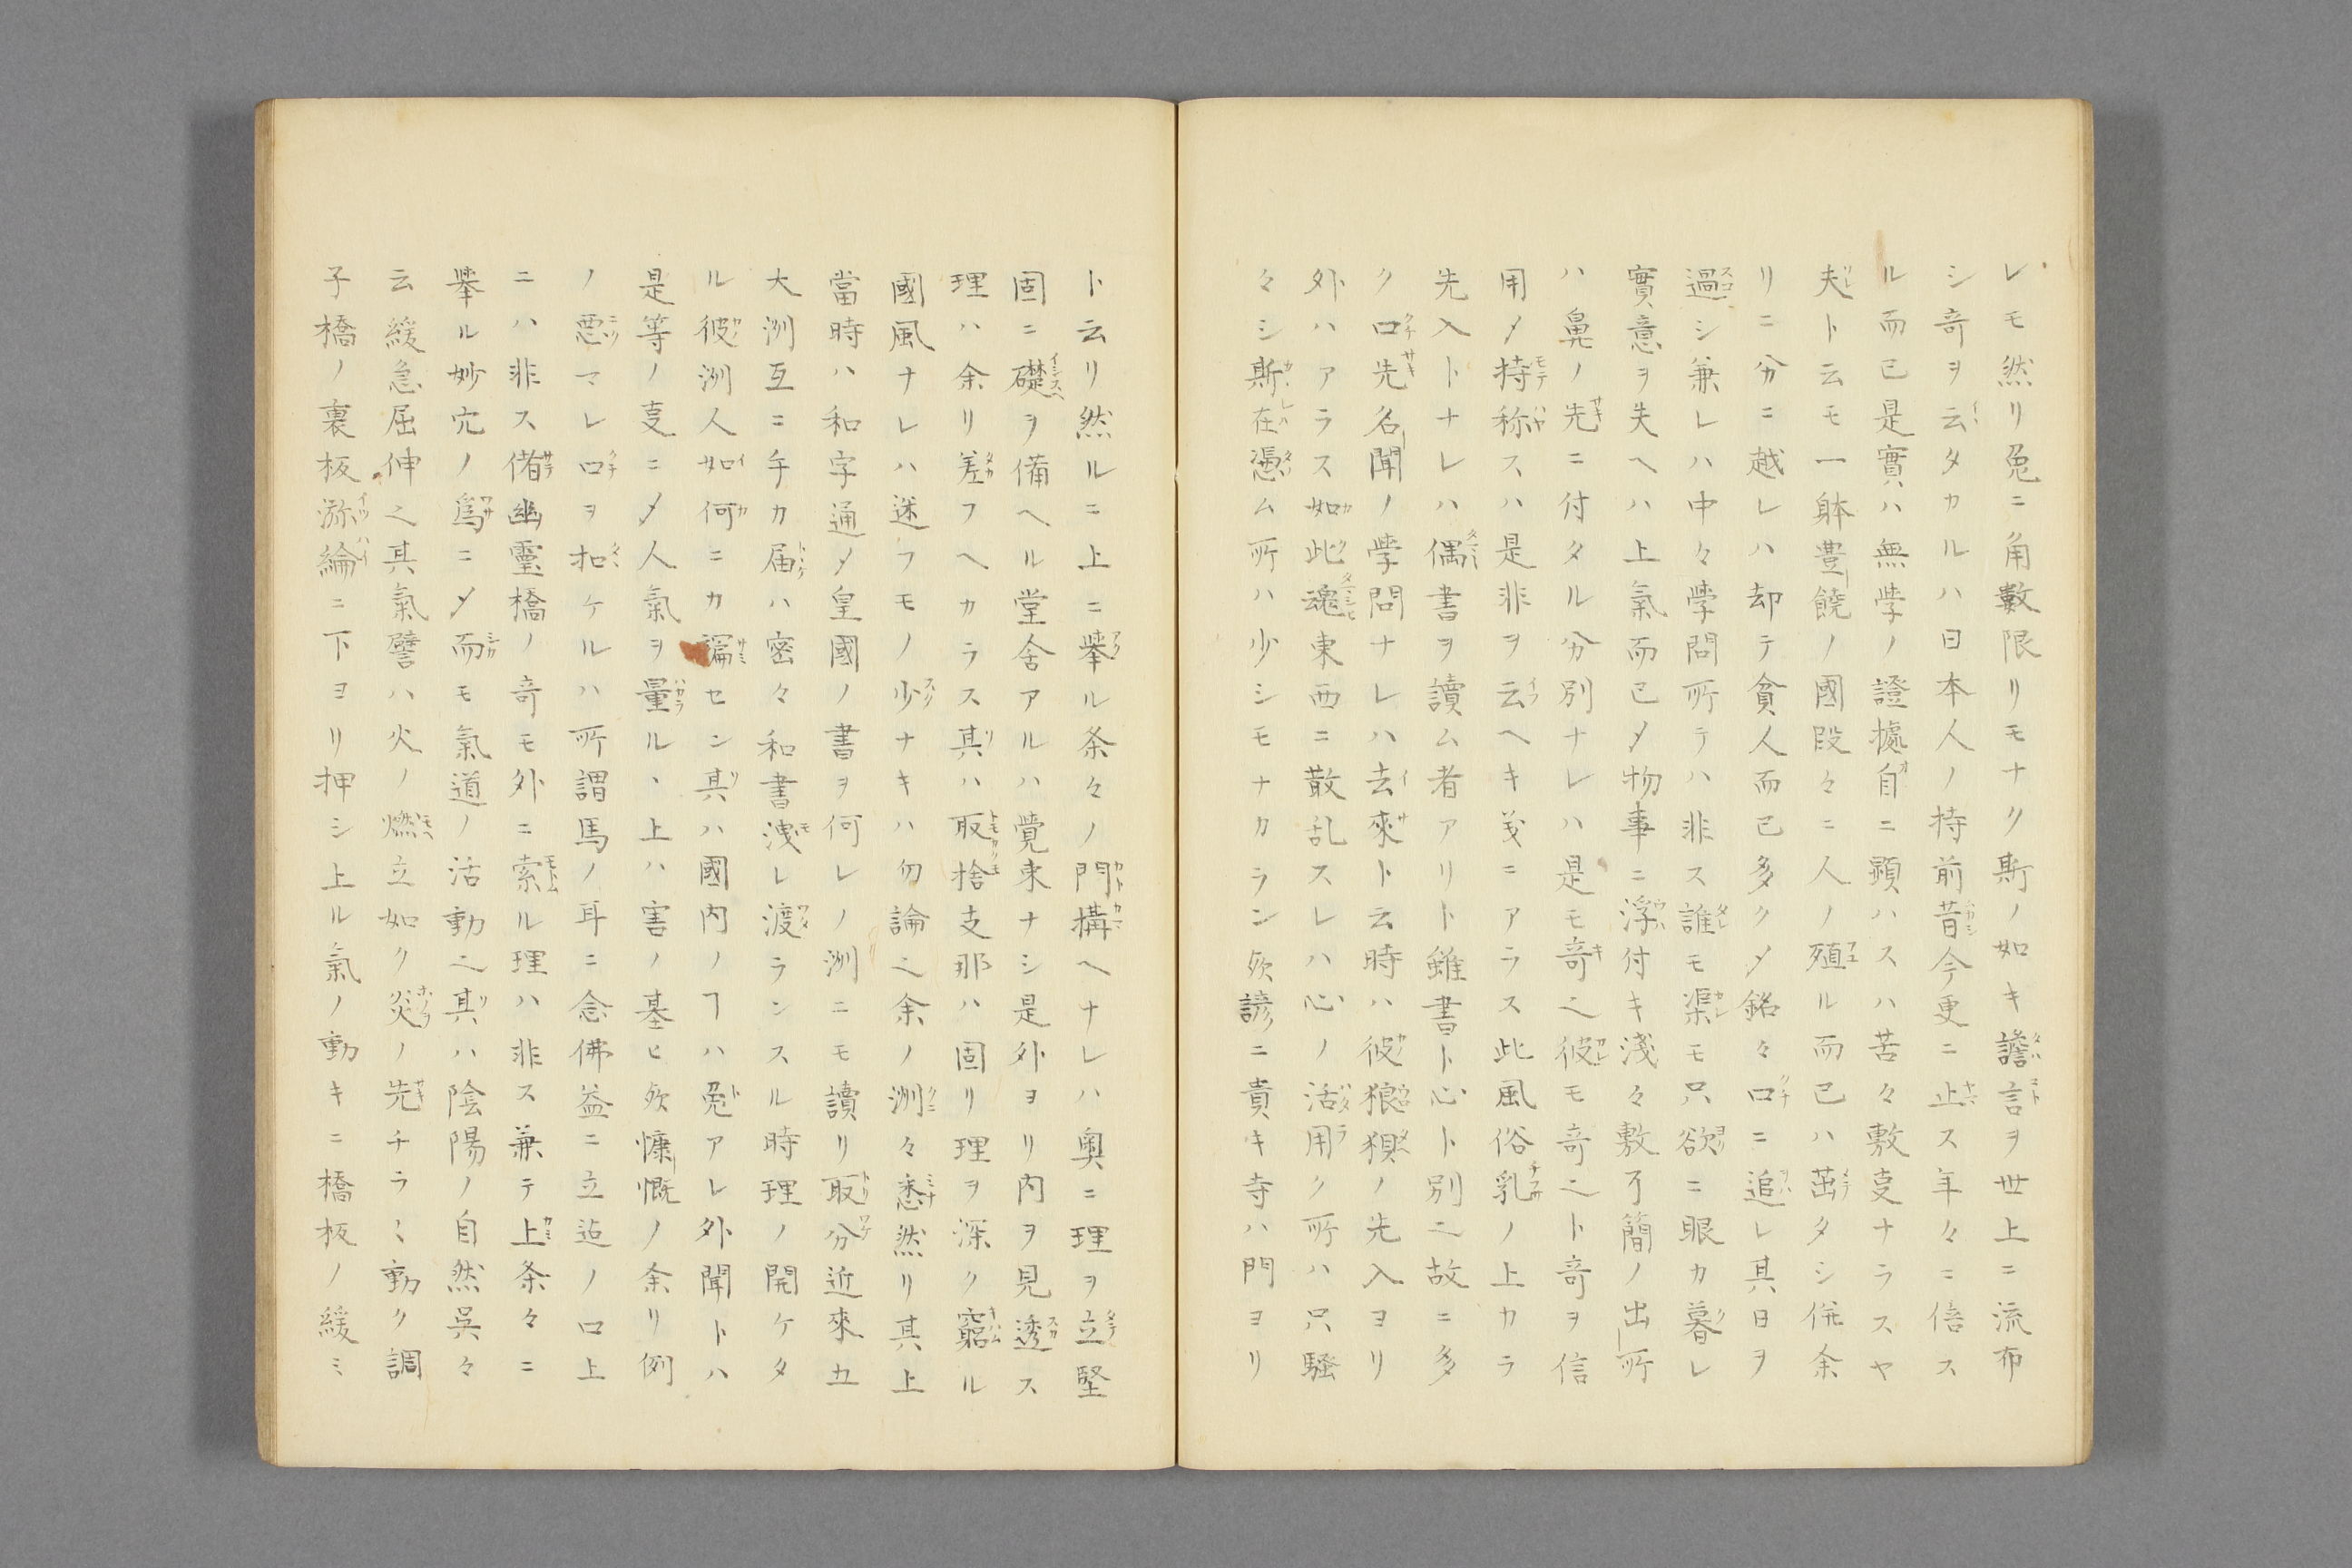 レモ然リ兎ニ角數限リモナク斯ノ如キ譫言ヲ世上ニ流布
シ竒ヲ云タカルハ日本人ノ持前昔今更ニ止ス年々ニ信ス
ル而已是實ハ無學ノ證據自ニ顕ハスハ苦々敷㕝ナラスヤ
夫ト云モ一躰豊饒ノ國段々ニ人ノ殖ル而已ハ茁タシ併余
リニ分ニ越レハ却テ貧人而已多クメ銘々口ニ追レ其日ヲ
過シ兼レハ中々學問所テハ非ス誰モ渠モ只欲ニ眼カ暮レ
實意ヲ失ヘハ上氣而已メ物事ニ浮付キ淺々敷了簡ノ出所
ハ鼻ノ先ニ付タル分別ナレハ是モ竒之彼モ竒之ト竒ヲ信
用メ持称スハ是非ヲ云ヘキ義ニアラス此風俗乳ノ上カラ
先入トナレハ偶書ヲ讀ム者アリト雖書ト心ト別ニ故ニ多
ク口先名聞ノ學問ナレハ去來ト云時ハ彼狼狽ノ先入ヨリ
外ハアラス如此魂東西ニ散乱スレハ心ノ活用ク所ハ只騒
々シ斯在憑ム所ハ少シモナカラン欤諺ニ貴キ寺ハ門ヨリ
ト云リ然ルニ上ニ擧ル条々ノ門構ヘナレハ奥ニ理ヲ立堅
固ニ礎ヲ備ヘル堂舎アルハ覺束ナシ是外ヨリ内ヲ見透ス
理ハ余リ差フヘカラス其ハ取捨支那ハ固リ理ヲ深ク窮ル
國風ナレハ迷フモノ少ナキハ勿論之余ノ洲々悉然リ其上
當時ハ和字通メ皇國ノ書ヲ何レノ洲ニモ讀リ取分近來五
大洲互ニ手カ届ハ密々和書洩レ渡ランスル時理ノ開ケタ
ル彼洲人如何ニカ諞セン其ハ國内ノヿハ兎アレ外聞トハ
是等ノ㕝ニメ人氣ヲ量ル、上ハ害ノ基ヒ欤慷慨ノ余リ例
ノ悪マレ口ヲ扣ケルハ所謂馬ノ耳ニ念佛益ニ立迠ノ口上
ニハ非ス偖幽霊橋ノ竒モ外ニ索ル理ハ非ス兼テ上条々ニ
擧ル妙穴ノ爲ニメ而モ氣道ノ活動之其ハ陰陽ノ自然呉々
云緩急屈伸之其氣譬ハ火ノ燃立如ク炎ノ先チラ〻動ク調
子橋ノ裏板㳺綸ニ下ヨリ押シ上ル氣ノ動キニ橋板ノ緩ミ